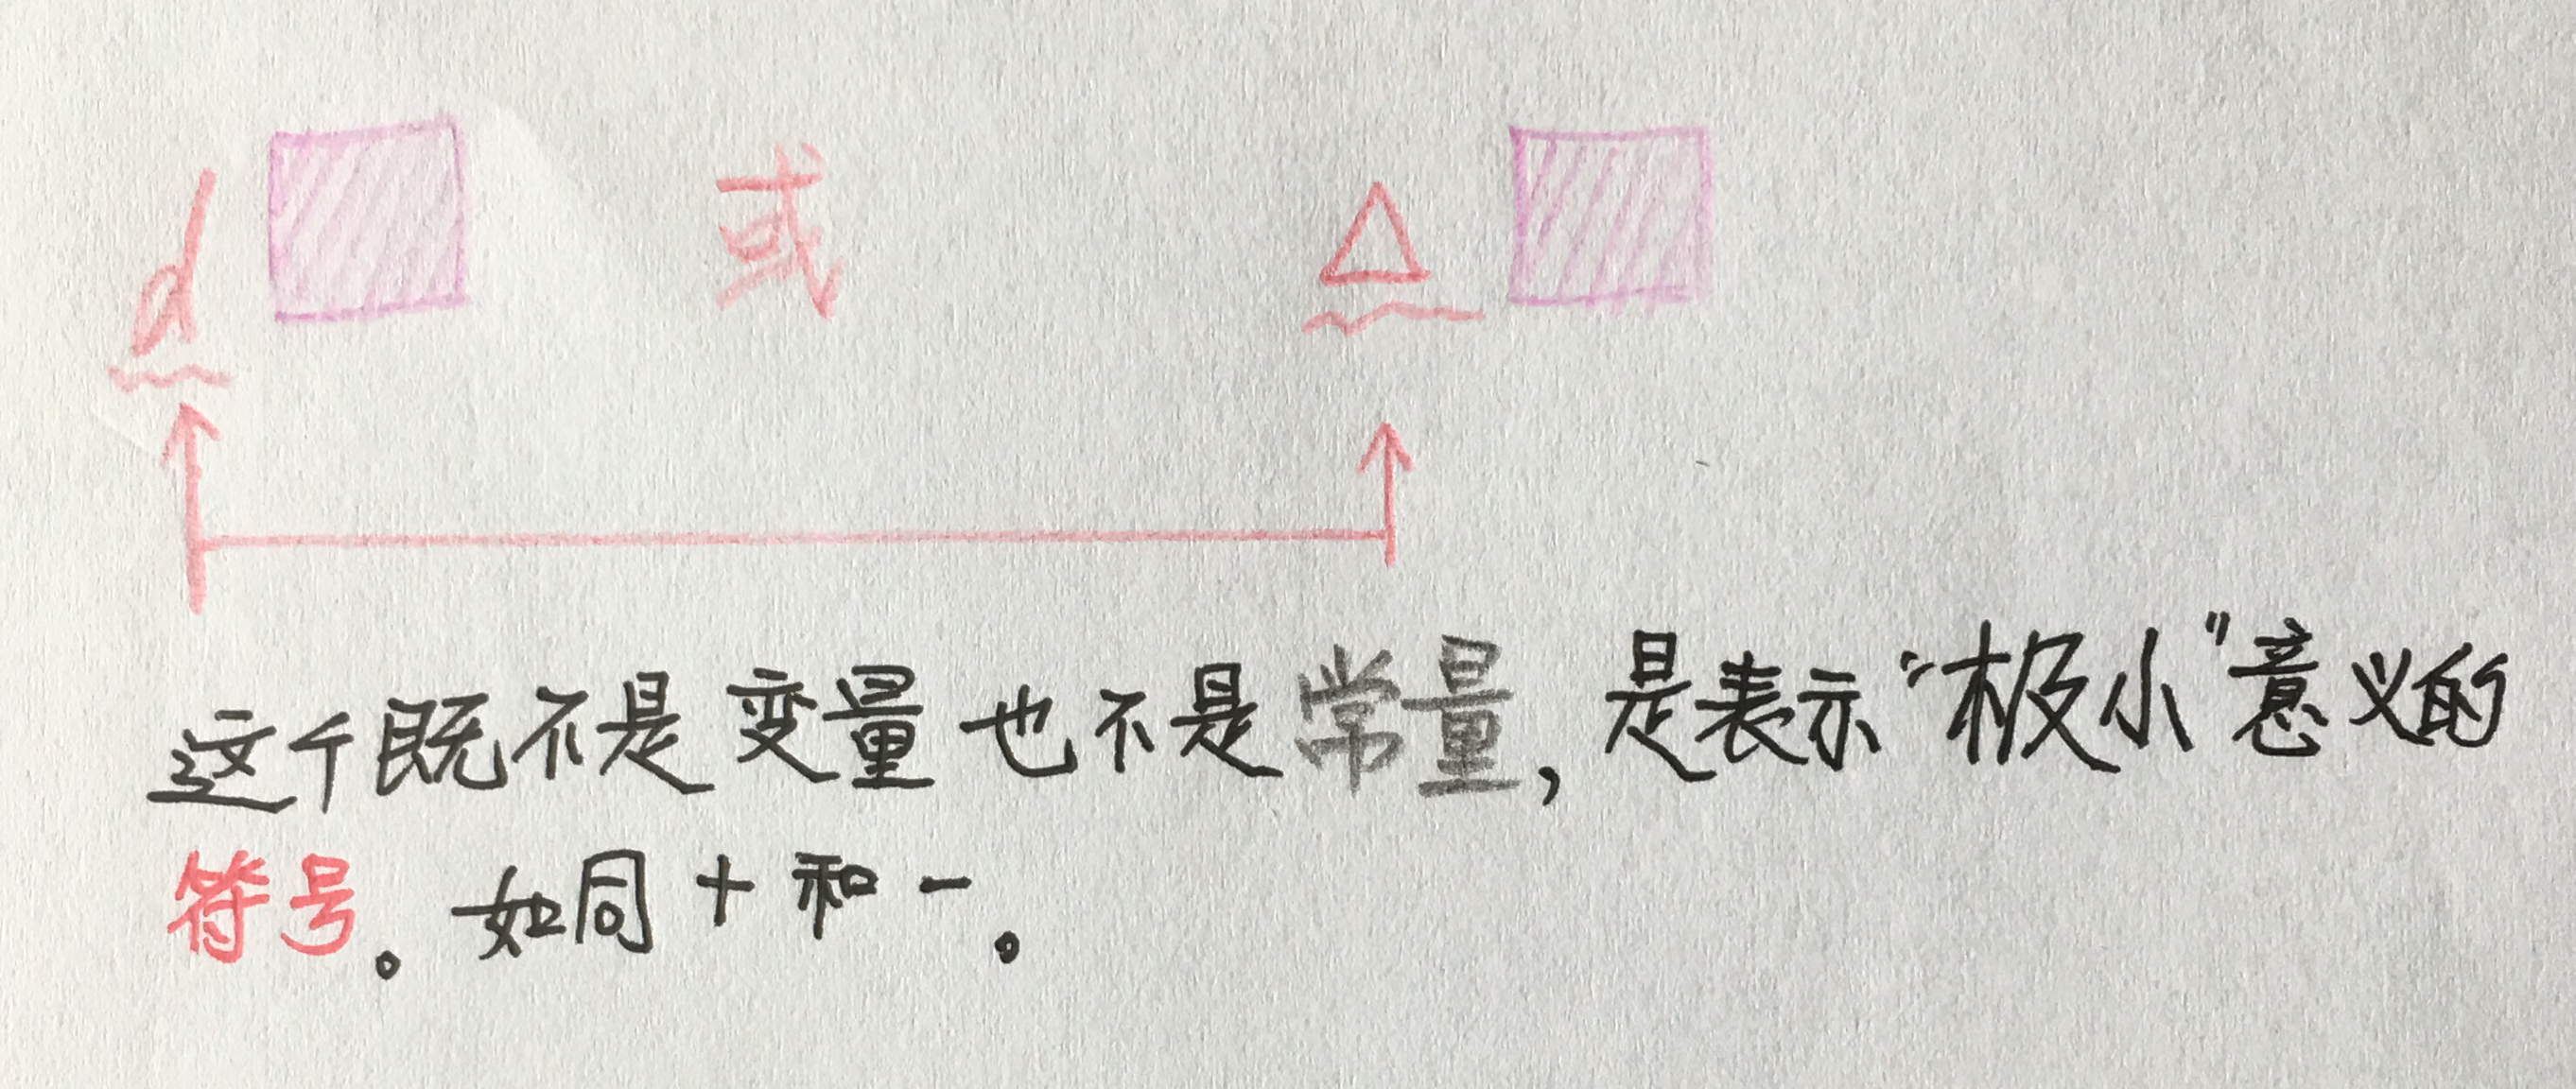 d 或 Δ
这个既不是变量也不是常量,是表示“极小”意义的
符号。如同+和-。